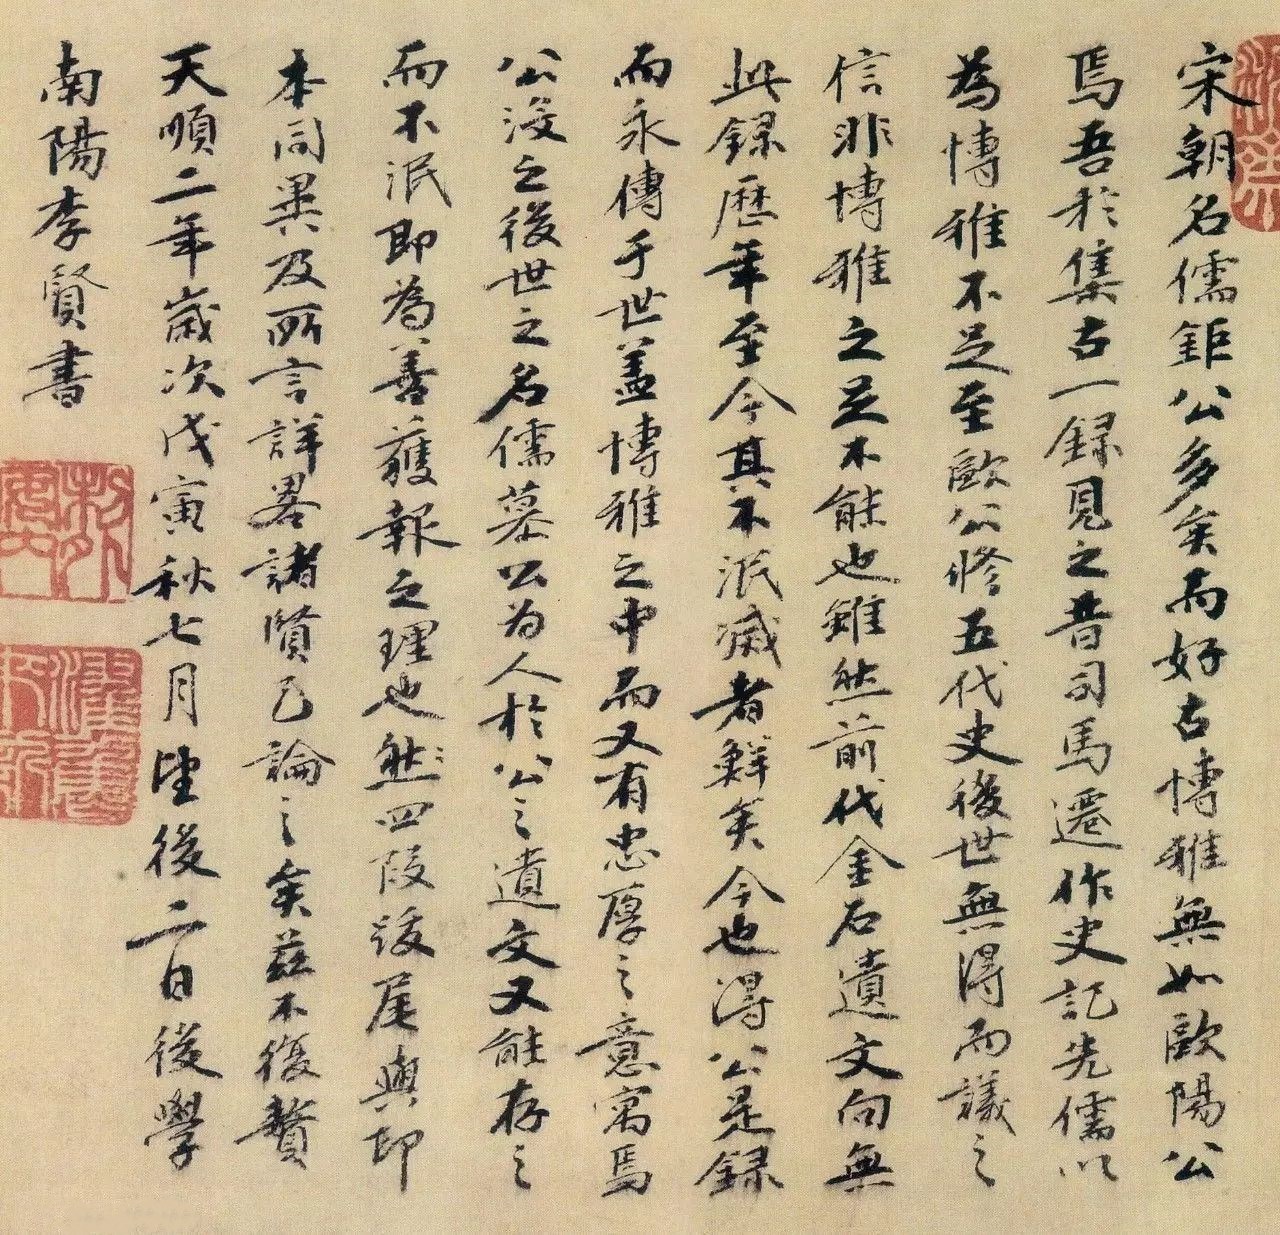 宋朝名儒鉅公多矣而好古博雅無如歐陽公
焉吾於集古一錄見之昔司馬遷作史記先儒以
為博雅不足至歐公修五代史後世無得而議之
信非博雅之足不能也雖然前代金石遺文向無
此錄歷年至今其不泯滅者鮮矣今也得公是錄
而永傳于世蓋博雅之中而又有忠厚之意寓焉
公沒之後世之名儒慕公為人於公之遺文又能存之
而不泯即為善獲報之理也然四段跋尾與印
本同異及所言詳畧諸賢已論之矣茲不復贅
天順二年歲次戊寅秋七月望後二日後學
南陽李賢書